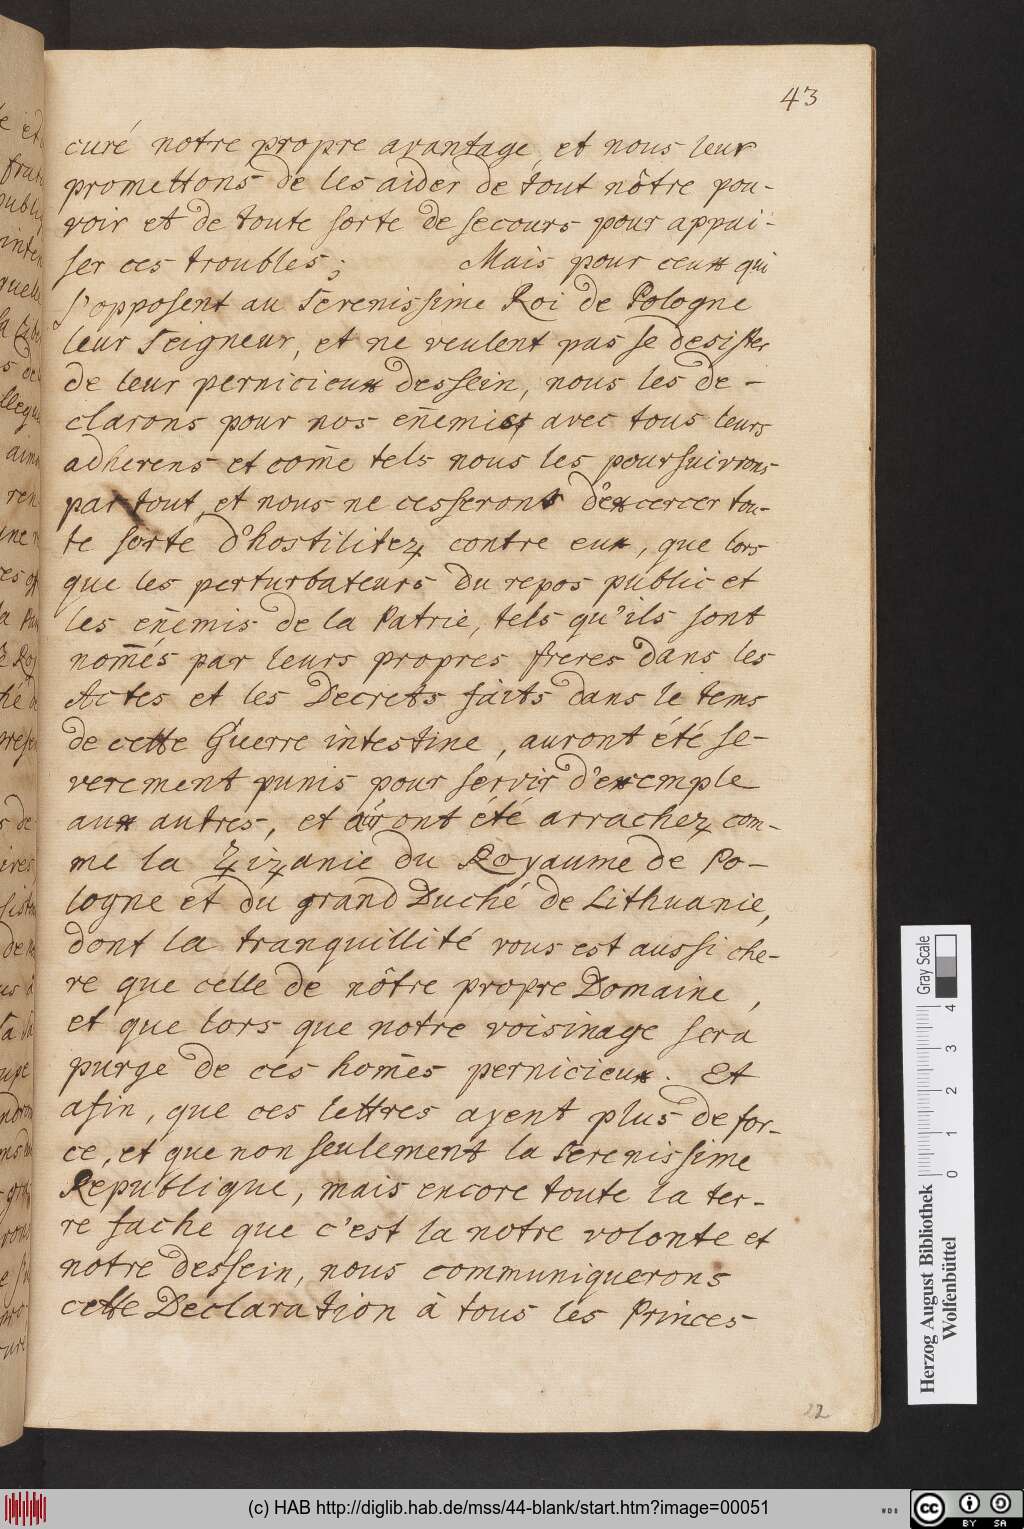 43
curé notre propre avantage, et nous leur
promettons de les aider de tout nôtre pou-
voir et de toute sorte de secours pour appai-
ser ces troubles; Mais pour ceux qui
s'opposent au Serenissime Roi de Pologne
leur Seigneur, et ne veulent pas se desister
de leur pernicieux dessein, nous les de-
clarons pour nos eñemis avec tous leurs
adherens et com̄e tels nous les poursuivrons
par tout, et nous ne cesserons d'excercer tou-
te sorte d'hostilitez contre eux, que lors
que les perturbateurs du repos public et
les eñemis de la Patrie, tels qu'ils sont
nom̄és par leurs propres freres dans les
Actes et les Decrets faits dans le tems
de cette Guerre intestine, auront été se-
verement punis pour servir d'excemple
aux autres, et auront été arrachez com-
me la Zizanie du Royaume de Po-
logne et du grand Duché de Lithuanie,
dont la tranquillité vous est aussi che-
re que celle de nôtre propre Domaine,
et que lors que notre voisinage sera
purge de ces hom̄es pernicieux. Et
afin, que ces lettres ayent plus de for-
ce, et que non seulement la Serenissime
Republique, mais encore toute la ter-
re sache que c'est la notre volonte et
notre dessein, nous communiquerons
cette Declaration à tous les Princes
22
Herzog August Bibliothek
Wolfenbüttel
0 1 2 3 4
Gray Scale
(c) HAB http://diglib.hab.de/mss/44-blank/start.htm?image=00051
WDB
cc BY SA